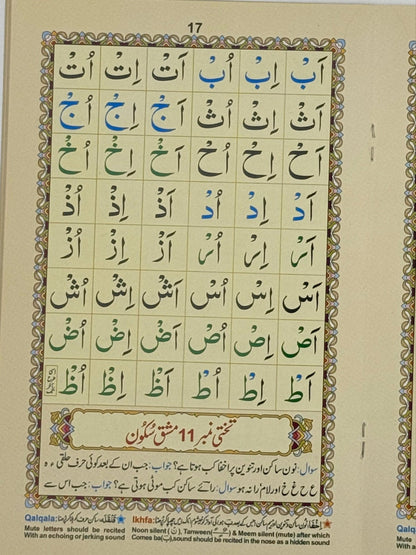 17
اَبْ اِبْ اُبْ اَتْ اِتْ اُتْ
اَثْ اِثْ اُثْ اَجْ اِجْ اُجْ
اَحْ اِحْ اُحْ اَخْ اِخْ اُخْ
اَدْ اِدْ اُدْ اَذْ اِذْ اُذْ
اَرْ اِرْ اُرْ اَزْ اِزْ اُزْ
اَسْ اِسْ اُسْ اَشْ اِشْ اُشْ
اَصْ اِصْ اُصْ اَضْ اِضْ اُضْ
اَطْ اِطْ اُطْ اَظْ اِظْ اُظْ
تختی نمبر 11 مشق سُکُون
سوال: نون ساکن اور تنوین پر اخفا کب ہوتا ہے؟ جواب: جب ان کے بعد کوئی حرف حلقی ء ہ
ع ح غ خ اور لام را نہ ہو سوال: رائے ساکن کب موٹی ہوتی ہے؟ جواب: جب اس سے
Qalqala:
Mute letters should be recited
With an echoing or jerking sound
Ikhfa:
Noon silent (نْ), Tanween & Meem silent (mute) after which
Comes ba(ب), sound should be recited in the nose as a hidden sound
Qalq
Mute
With an